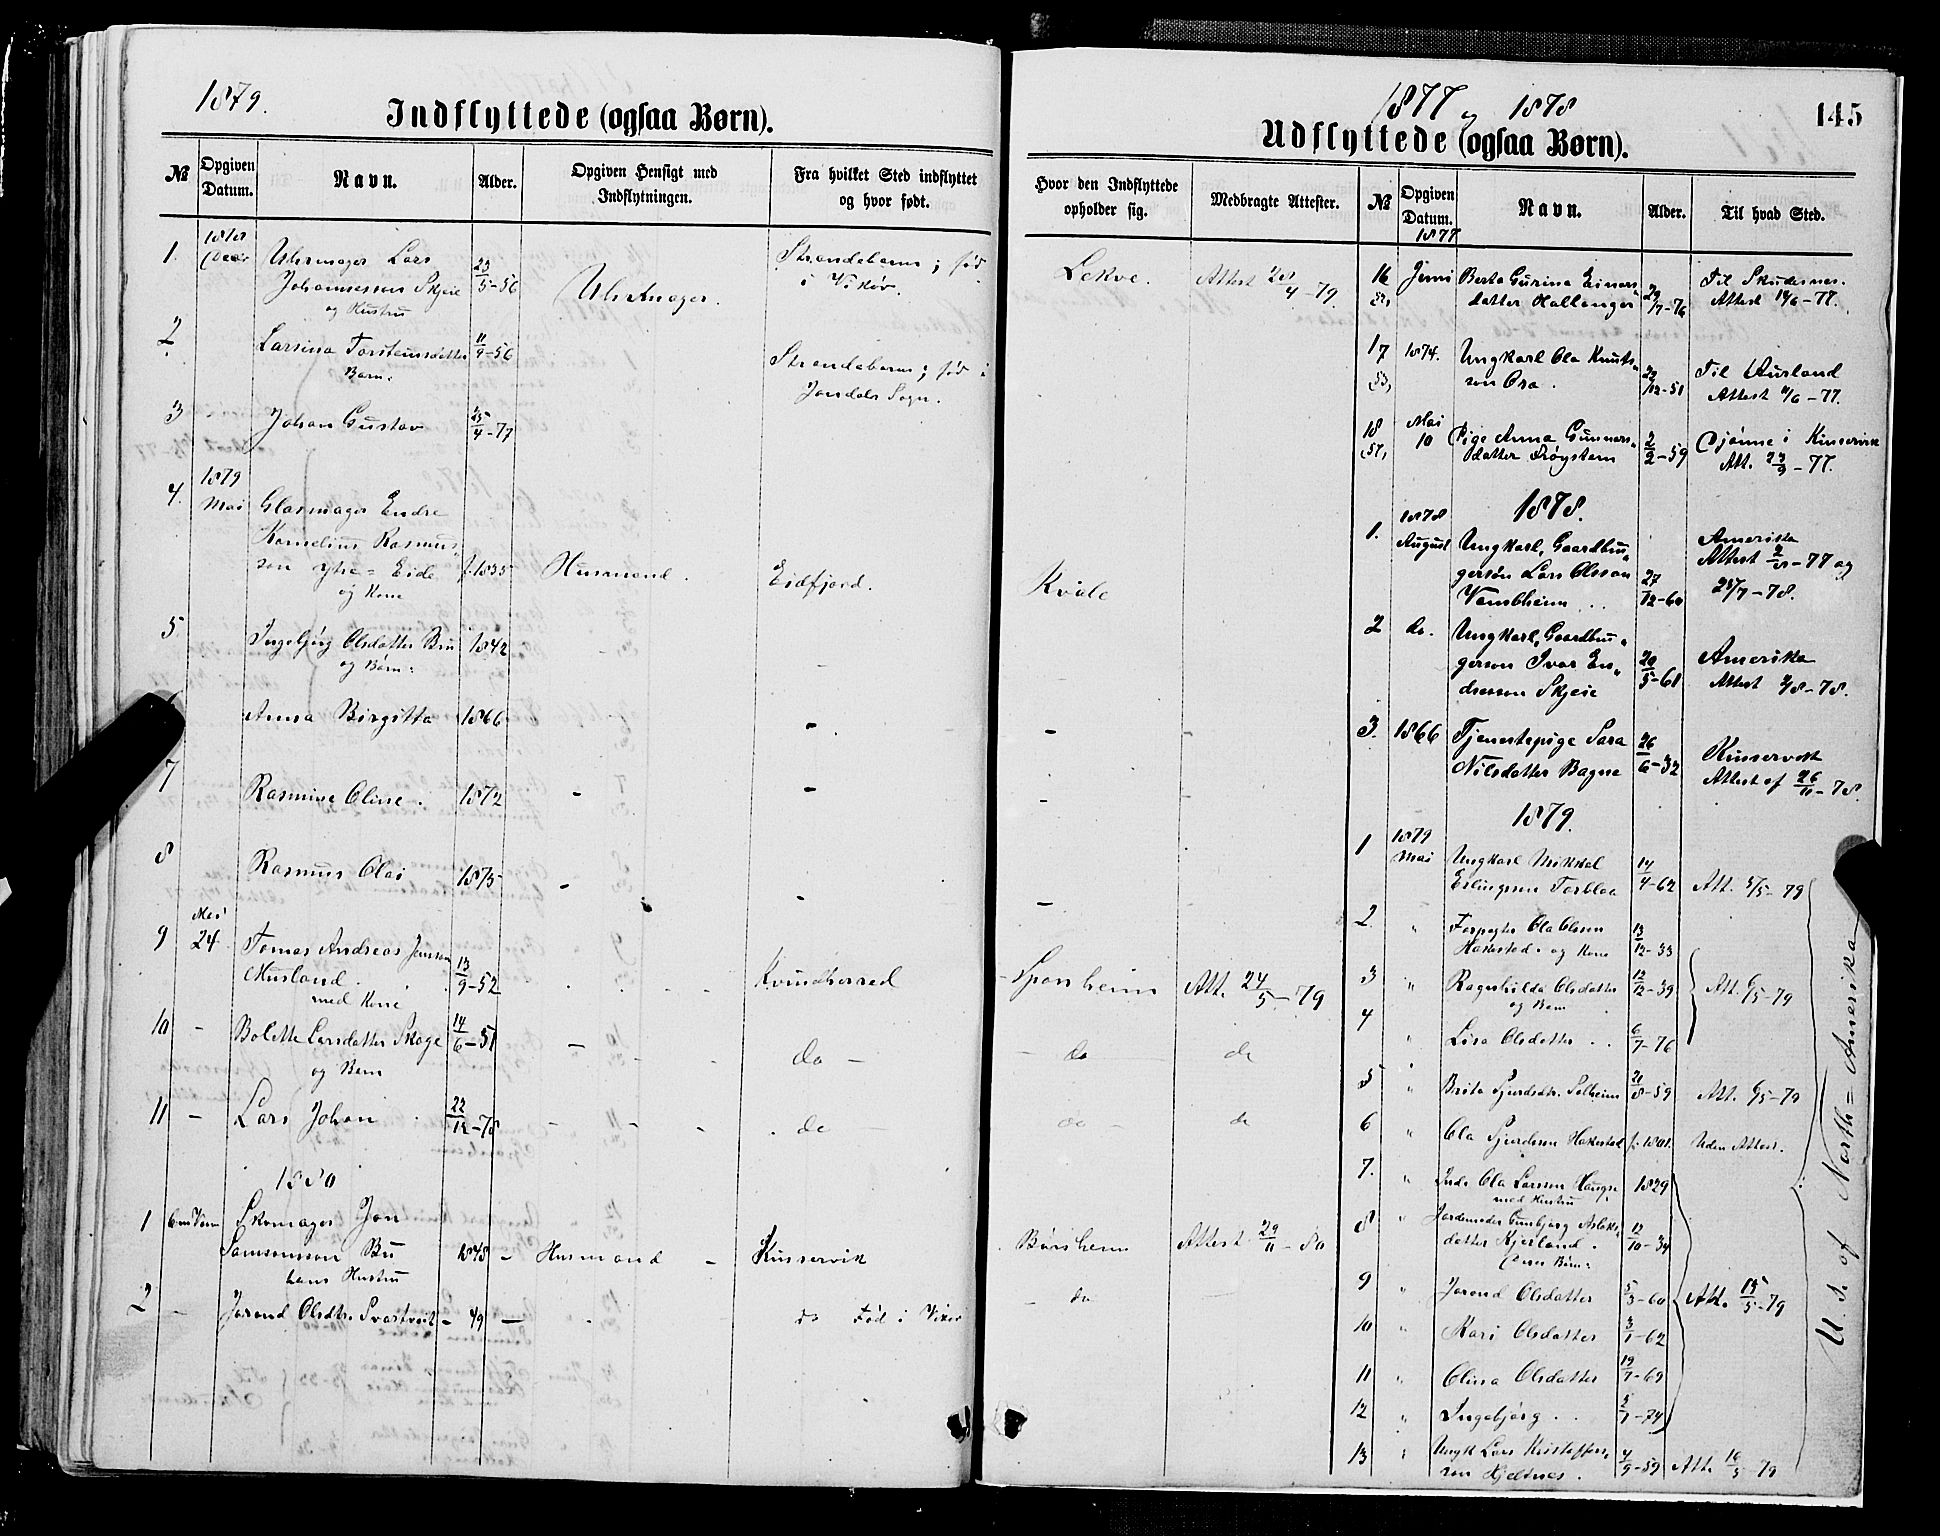 1879.
Indflyttede (ogsaa Børn).
№
Opgiven Datum.
Navn.
Alder.
Opgiven Hensigt med Indflytningen.
Fra hvilket Sted indflyttet og hvor født.
1. 1878 Uhrmager Lars
Johannessen Skjeie 23/5-56 Uhrmager. Strandebarm; fød i Vikør.
og Hustru
2 Larsina Torsteinsdatter 11/9-56 Strandebarm; fød i
Barn: Jondals Sogn.
3 Johan Gustav 25/4-77
4. 1879 Mai Glasmager Endre
Kornelius Rasmus-
son ytre=Eide f. 1835 Husmand. Eidfjord.
og Kone
5 Ingebjørg Olsdatter Bu 1842 -
og Børn:
Anna Birgitta 1866 - -
7 Rasmine Oline. 1872 - -
8 Rasmus Olai 1875 - -
9 Mai 24. Tomas Andreas Jansson
Musland. 13/9-52 Kvindherred
med Kone
10 - Bolette Larsdatter Skage 14/6-51 - do -
og Barn
11 - Lars Johan 22/12-78 - - - do -
1880
1 Skomager Jon
Samsonsson Bu 1848 - Husmand - Kinservik
hans Hustru
2 - Jorend Olsdtr. Svartveit - 49 - do Fød i Vikør
1877 og 1878
145
Udflyttede (ogsaa Børn).
Hvor den Indflyttede opholder sig.
Medbragte Attester.
№
Opgiven Datum.
Navn.
Alder.
Til hvad Sted.
1877
Lekve. Attest 28/4-79.
Kvale
- -
- -
-
Sponheim Att. 24/5-79
- do - do
do - do
Børsheim Attest 29/11-80
- do
16 Juni Berta Gurina Einars-
datter Hallanger 29/7-76 Til Skudesnes.
Attest 14/6-77.
17 1874. Ungkarl Ola Knuts-
son Osa. 29/12-51 Til Aurland
Attest 4/6-77.
18 Mai 10 Pige Anna Gunnars-
datter Frøystein 2/2-59 Djønne i Kinservik
Att. 23/9-77.
1878.
1. 1878 August Ungkarl, Gaardbru-
gersøn Lars Olsson
Vambheim 27/12-60 Amerika
Attest 2/8-77 og
28/7-78.
2 do. Ungkarl, Gaardbru-
gersøn Ivar En-
dresson Skjeie 20/5-61 Amerika
Attest 2/8-78.
3. 1866 Tjenestepige Sara
Nilsdatter Bagne 26/6-32 Kinservik
Attest af 26/11-78.
1879.
1 1879 Mai Ungkarl Mikkal
Erlingsson Torbloa 14/4-62 Att. 5/5-79
2 " Forpagter Ola Olsson
Hakestad. og Kone 13/12-33
3 " Ragnhilda Olsdatter 12/12-39 Att. 6/5-79
og Barn
4 " Lisa Olsdatter . . 6/7-76
5 " Brita Sjurdsdtr. Selheim 20/8-59 Att. 6/5-79
6 " Ola Sjurdsson Hakestad f. 1801. Uden Attest.
7. " Inds. Ola Larsson Haugse 1829
med Hustru
8 " Jordemoder Gunbjørg Aslaks-
datter Kjerland. 12/10-34
Deres Børn:
9 " Jorend Olsdatter 5/3-60 Att. 15/5-79
10 " Kari Olsdatter 3/1-62
11 " Olina Olsdatter 19/7-69
12 " Ingebjørg . . 5/1-74
13 " Ungk. Lars Kristoffers-
son Hjeltnes. 4/9-59 Att. 16/5-79
U. S. of North=Amerika